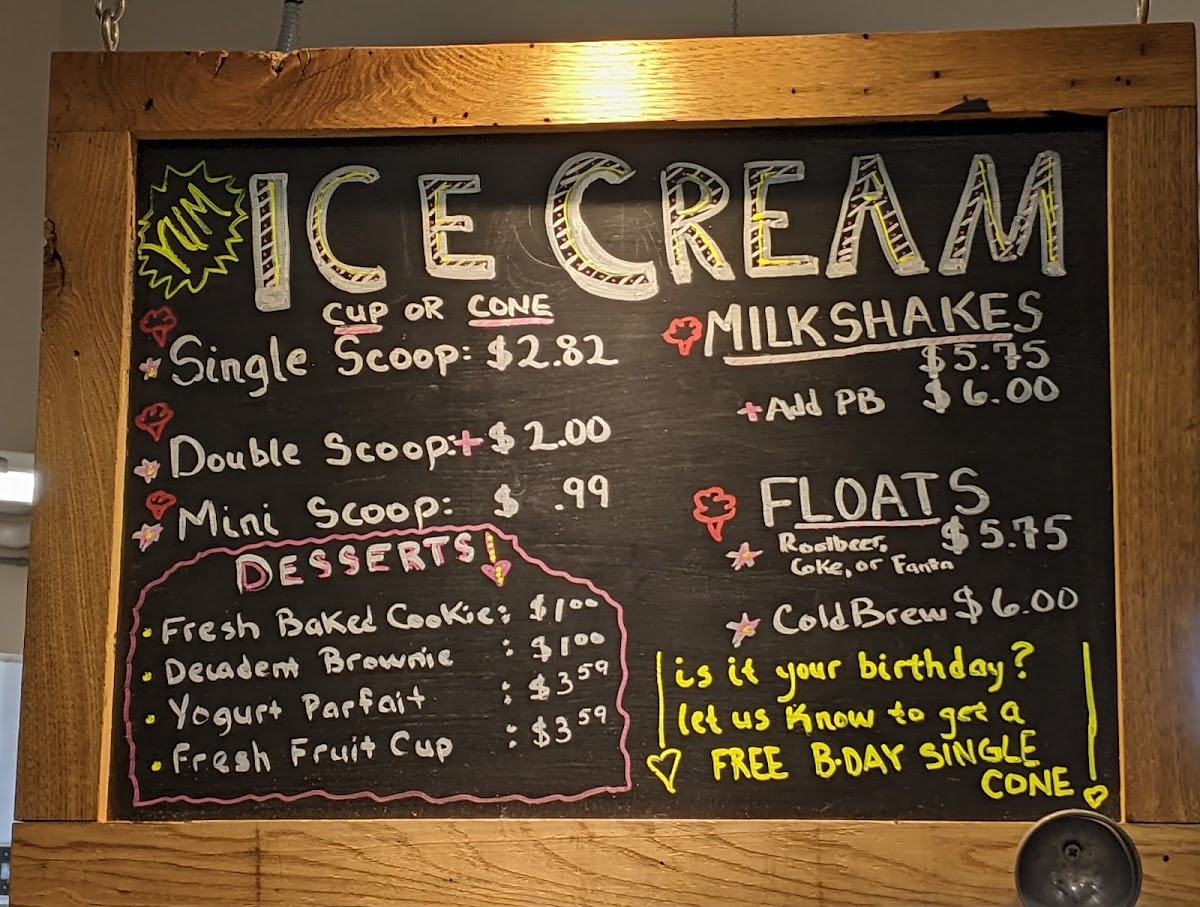 YUM ICE CREAM
CUP OR CONE
Single Scoop: $2.82
Double Scoop:+ $2.00
Mini Scoop: $ .99
DESSERTS!
Fresh Baked Cookie: $1.00
Decadent Brownie : $1.00
Yogurt Parfait : $3.59
Fresh Fruit Cup : $3.59
MILKSHAKES
$5.75
+Add PB $6.00
FLOATS
Rootbeer, $5.75
Coke, or Fanta
Cold Brew $6.00
is it your birthday?
let us know to get a
FREE B-DAY SINGLE
CONE